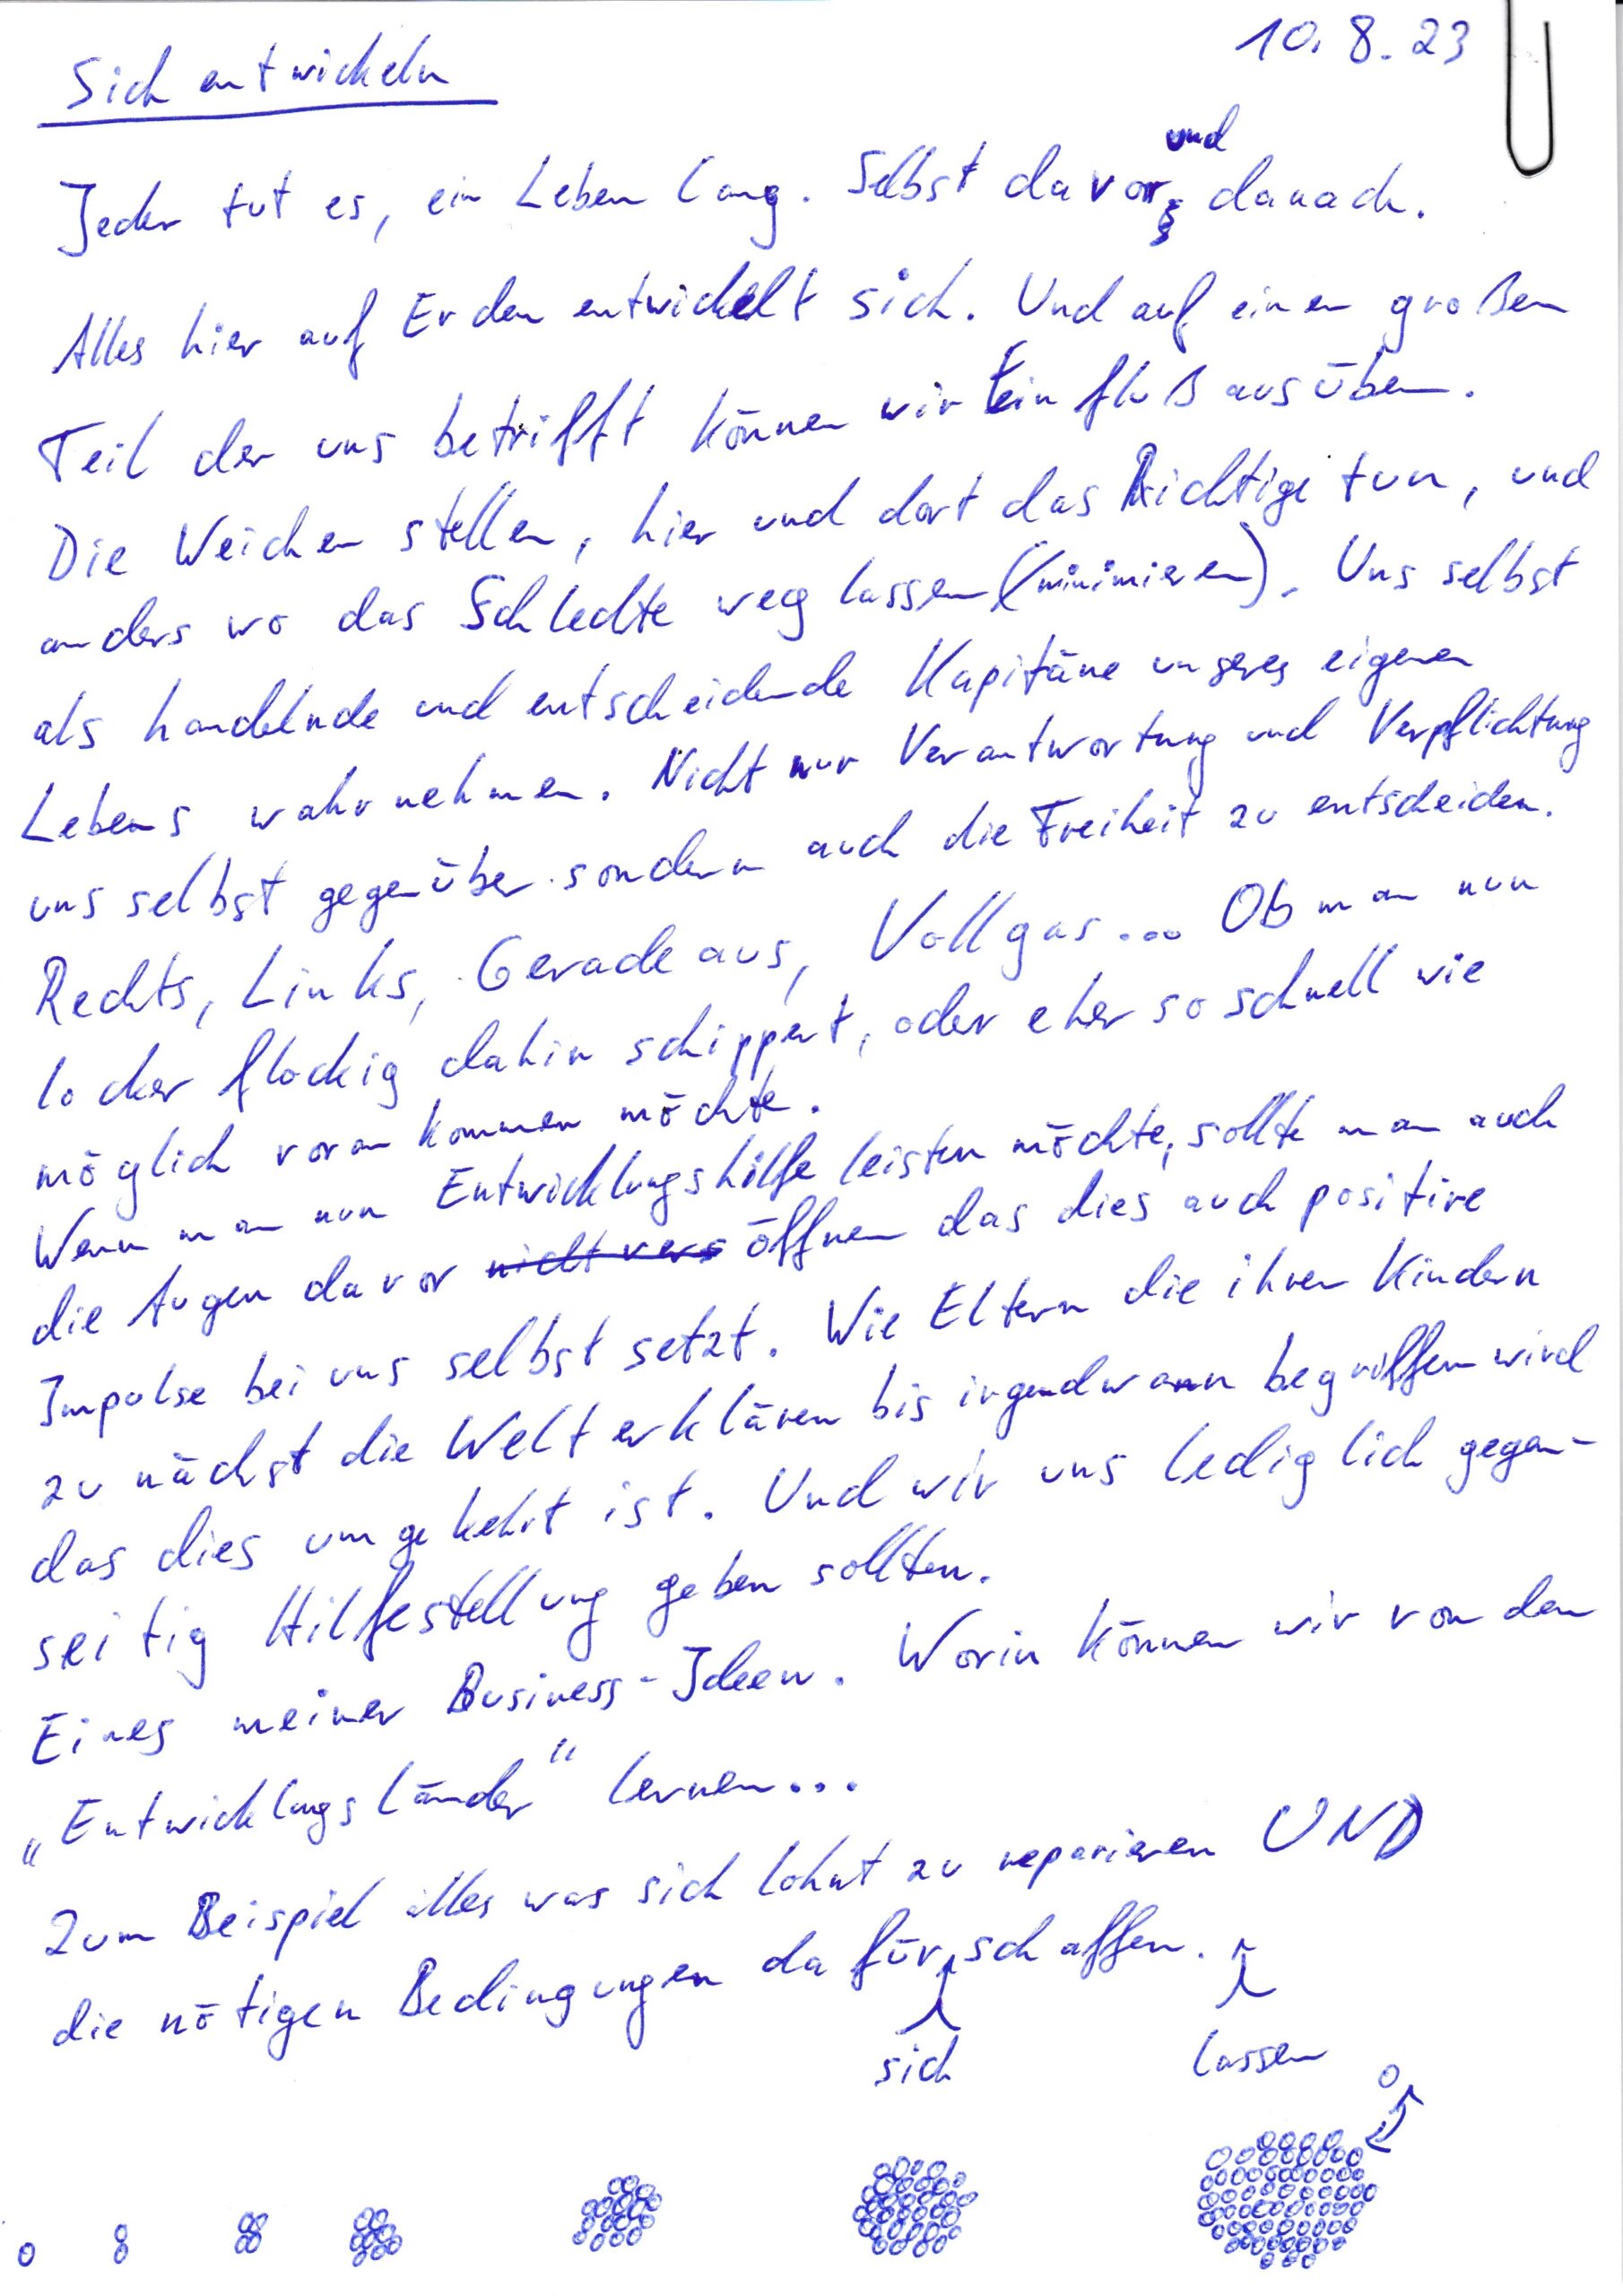 10.8.23
Sich entwickeln
und
Jeder tut es, ein Leben lang. Selbst davor danach.
Alles hier auf Erden entwickelt sich. Und auf einen großen
Teil der uns betrifft können wir Einfluß ausüben.
Die Weichen stellen, hier und dort das Richtige tun, und
anders wo das Schlechte weg lassen (minimieren). Uns selbst
als handelnde und entscheidende Kapitäne unseres eigenen
Lebens wahrnehmen. Nicht nur Verantwortung und Verpflichtung
uns selbst gegenüber sondern auch die Freiheit zu entscheiden.
Rechts, Links, Geradeaus, Vollgas... Ob man nun
locker flockig dahin schippert, oder eher so schnell wie
möglich voran kommen möchte.
Wenn man nun Entwicklungshilfe leisten möchte, sollte man auch
die Augen davor nicht vers öffnen das dies auch positive
Impulse bei uns selbst setzt. Wie Eltern die ihren Kindern
zu nächst die Welt erklären bis irgendwann begriffen wird
das dies umgekehrt ist. Und wir uns lediglich gegen-
seitig Hilfestellung geben sollten.
Eines meiner Business-Ideen. Worin können wir von den
„Entwicklungsländer" lernen...
Zum Beispiel alles was sich lohnt zu reparieren UND
die nötigen Bedingungen dafür schaffen.
sich lassen